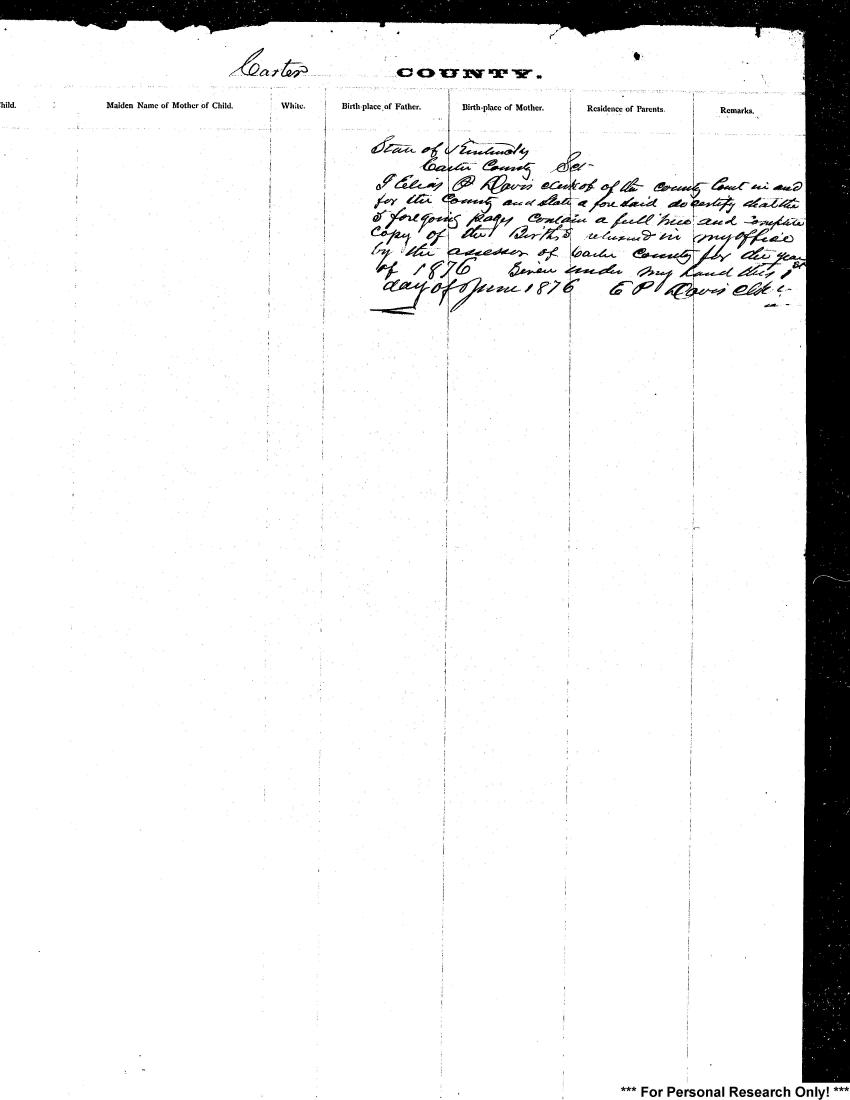 Carter COUNTY.
hild. Maiden Name of Mother of Child. White. Birth-place of Father. Birth-place of Mother. Residence of Parents. Remarks.
State of Kentucky
Carter County Sct
I Elias P Davis clerk of the county Court in and
for the County and State a fore said do certify that the
5 foregoing pages contain a full true and complete
copy of the Births returned in my office
by the assessor of Carter County for the year
of 1876 Given under my hand this 1st
day of June 1876 E P Davis Clk
*** For Personal Research Only! ***